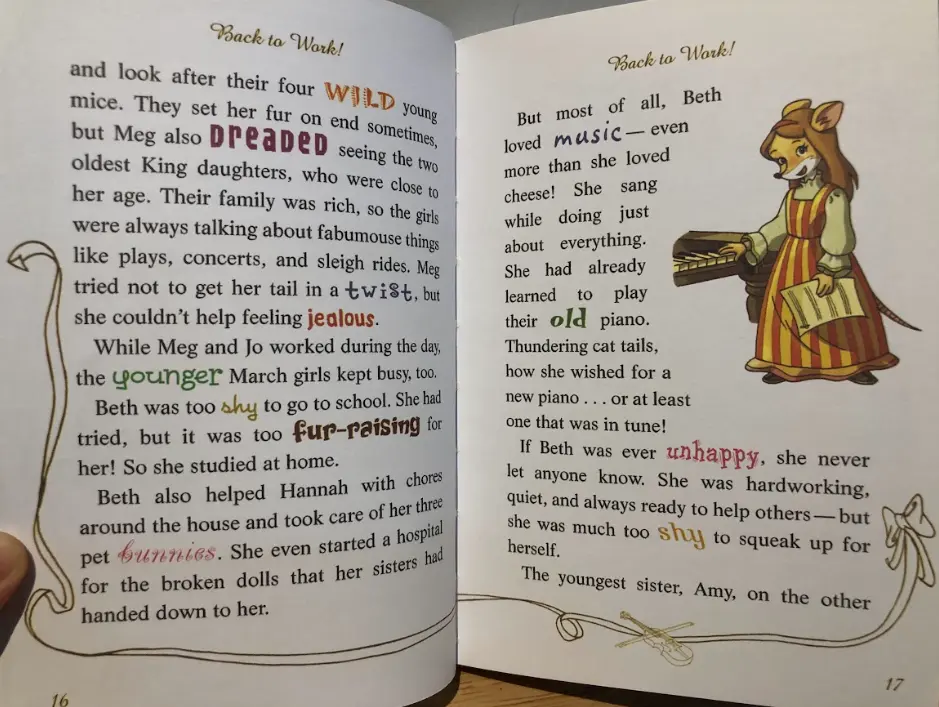 Back to Work!
and look after their four WILD young
mice. They set her fur on end sometimes,
but Meg also DREADED seeing the two
oldest King daughters, who were close to
her age. Their family was rich, so the girls
were always talking about fabumouse things
like plays, concerts, and sleigh rides. Meg
tried not to get her tail in a twist, but
she couldn't help feeling jealous.
While Meg and Jo worked during the day,
the younger March girls kept busy, too.
Beth was too shy to go to school. She had
tried, but it was too fur-raising for
her! So she studied at home.
Beth also helped Hannah with chores
around the house and took care of her three
pet bunnies. She even started a hospital
for the broken dolls that her sisters had
handed down to her.
16
Back to Work!
But most of all, Beth
loved music — even
more than she loved
cheese! She sang
while doing just
about everything.
She had already
learned to play
their old piano.
Thundering cat tails,
how she wished for a
new piano . . . or at least
one that was in tune!
If Beth was ever unhappy, she never
let anyone know. She was hardworking,
quiet, and always ready to help others — but
she was much too shy to squeak up for
herself.
The youngest sister, Amy, on the other
17